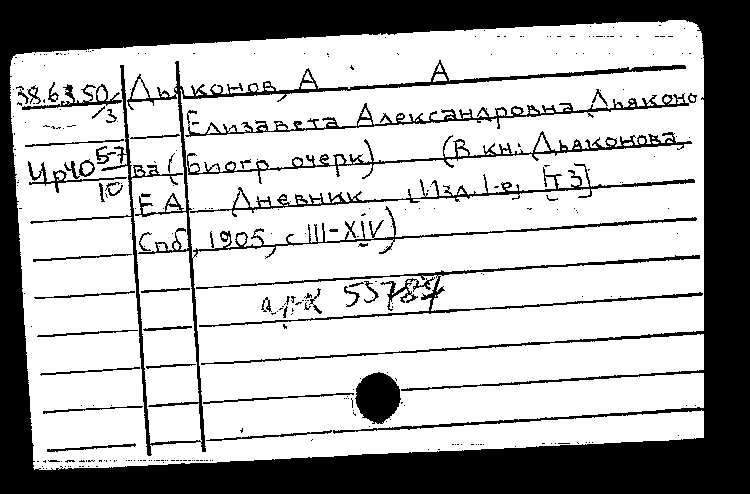 38.63.50/3 Дьяконов, А А
Елизавета Александровна Дьяконо-
Чр40 5-7/10 ва (Биогр. очерк). (В кн.: Дьяконова,
Е А Дневник. Изд. 1-е, [Т 3].
Спб, 1905, с III-XIV)
55787